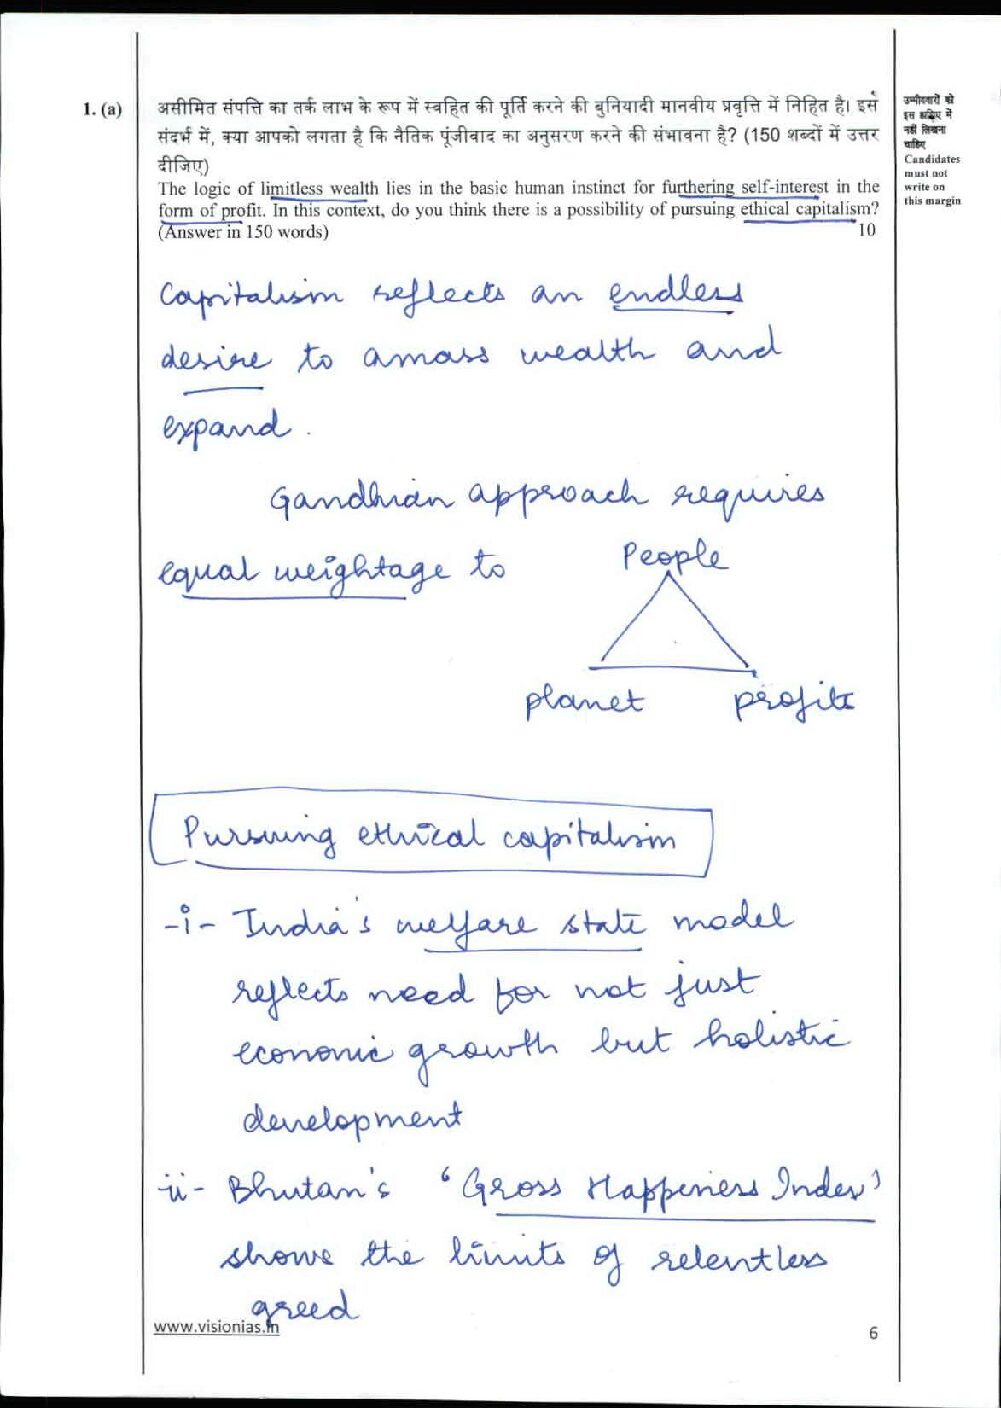 1. (a) असीमित संपत्ति का तर्क लाभ के रूप में स्वहित की पूर्ति करने की बुनियादी मानवीय प्रवृत्ति में निहित है। इस
संदर्भ में, क्या आपको लगता है कि नैतिक पूंजीवाद का अनुसरण करने की संभावना है? (150 शब्दों में उत्तर
दीजिए)
The logic of limitless wealth lies in the basic human instinct for furthering self-interest in the
form of profit. In this context, do you think there is a possibility of pursuing ethical capitalism?
(Answer in 150 words) 10
उम्मीदवारों को
इस हाशिए में
नहीं लिखना
चाहिए
Candidates
must not
write on
this margin
Capitalism reflects an endless
desire to amass wealth and
expand.
Gandhian approach requires
equal weightage to
People
planet profits
Pursuing ethical capitalism
-i- India's welfare state model
reflects need for not just
economic growth but holistic
development
ii- Bhutan's 'Gross Happiness Index'
shows the limits of relentless
greed
www.visionias.in
6